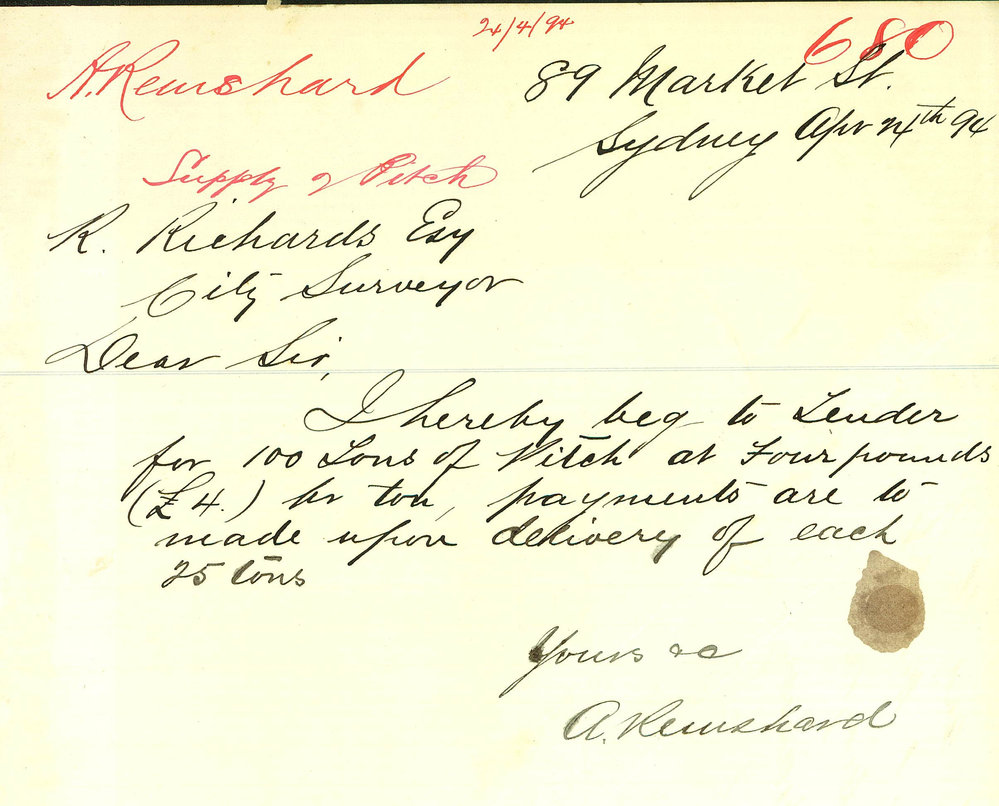 24/4/94
680
A. Remshard
89 Market St.
Sydney Apr 24th 94
Supply of Pitch
R. Richards Esq
City Surveyor
Dear Sir,
I hereby beg to Tender
for 100 Tons of Pitch at Four pounds
(£4.) pr ton, payments are to
made upon delivery of each
25 tons
Yours &c
A. Remshard